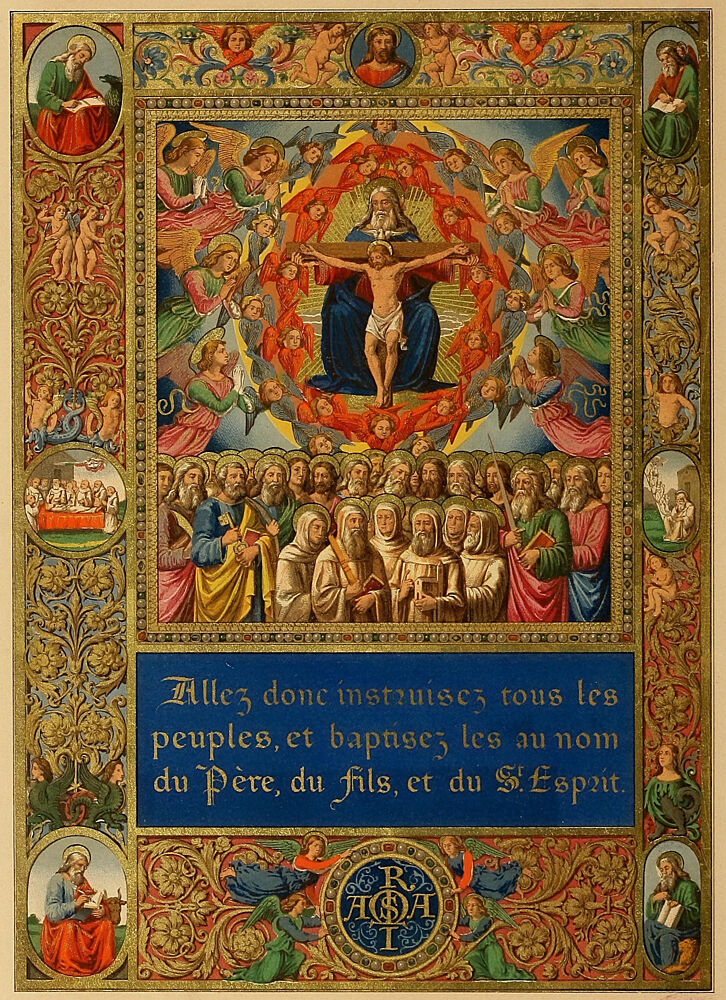 Allez donc instruisez tous les
peuples, et baptisez les au nom
du Père, du Fils, et du St. Esprit.